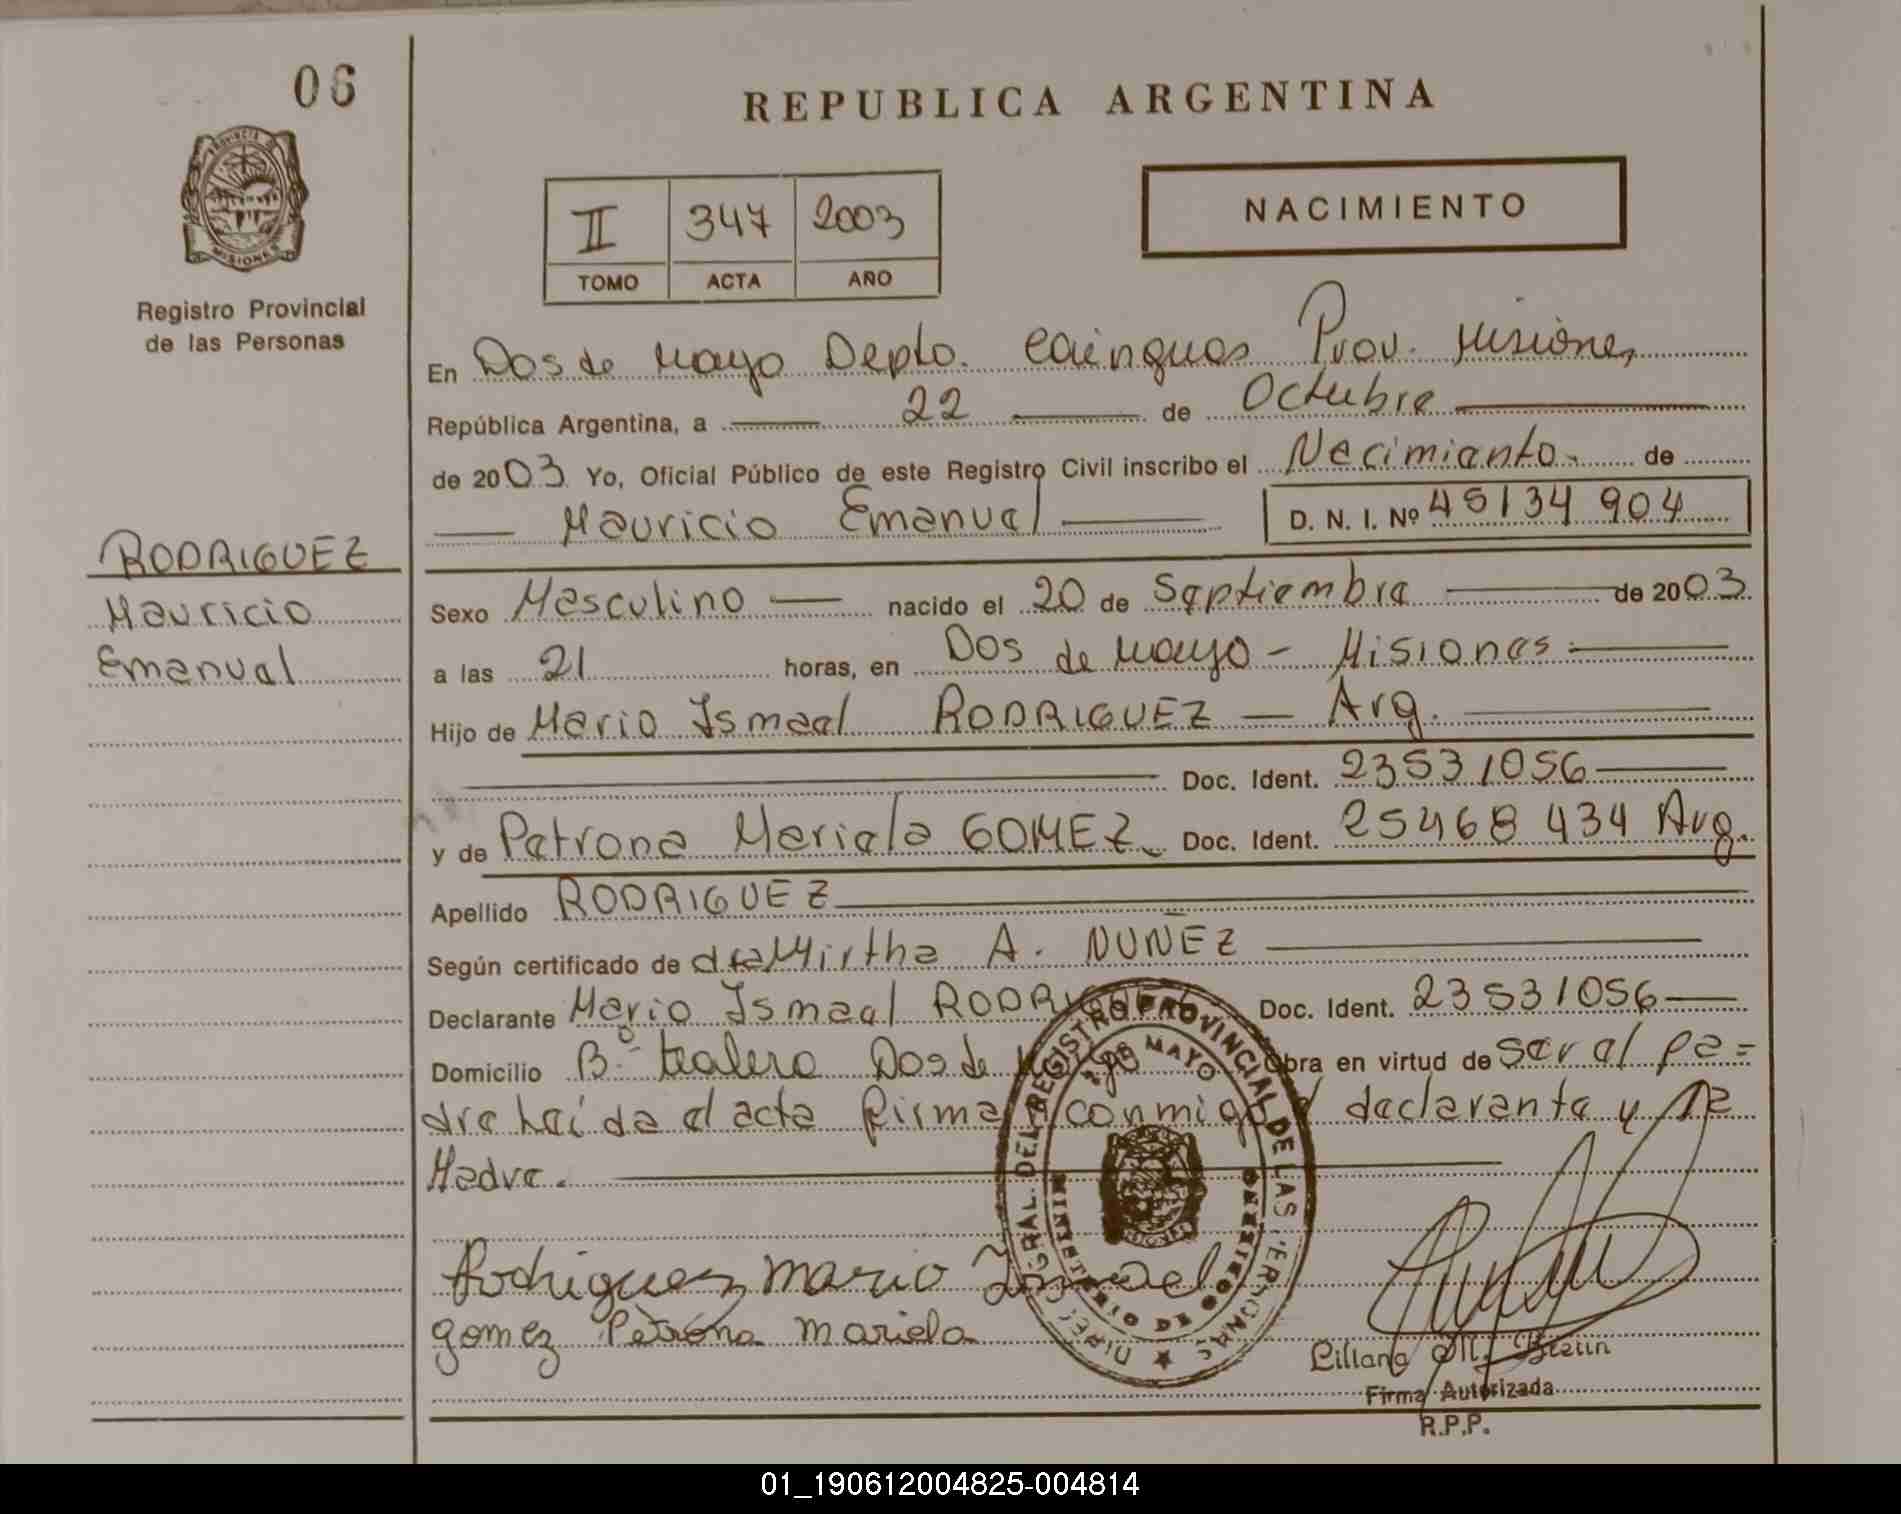 06
REPUBLICA ARGENTINA
PROVINCIA DE MISIONES
Registro Provincial
de las Personas
II 347 2003
TOMO ACTA AÑO
NACIMIENTO
En Dos de Mayo Depto. Cainguas Prov. Misiones
República Argentina, a 22 de Octubre
de 2003 Yo, Oficial Público de este Registro Civil inscribo el Nacimiento de
Mauricio Emanuel D. N. I. Nº 45134904
RODRIGUEZ
Mauricio
Emanuel
Sexo Masculino nacido el 20 de Septiembre de 2003
a las 21 horas, en Dos de Mayo - Misiones
Hijo de Mario Ismael RODRIGUEZ — Arg.
Doc. Ident. 23531056
y de Petrona Mariela GOMEZ Doc. Ident. 25468434 Arg.
Apellido RODRIGUEZ
Según certificado de dra Mirtha A. NUÑEZ
Declarante Mario Ismael RODRIGUEZ Doc. Ident. 23531056
Domicilio Bº Dos de Mayo Obra en virtud de ser el pa=
dre Leída el acta firma conmigo declarante y la
Madre.
Rodriguez mario Ismael
gomez Petrona mariela
DIREC. GRAL. DEL REGISTRO PROVINCIAL DE LAS PERSONAS
2 DE MAYO
MINISTERIO DE GOBIERNO
Liliana M. Braun
Firma Autorizada
R.P.P.
01_190612004825-004814